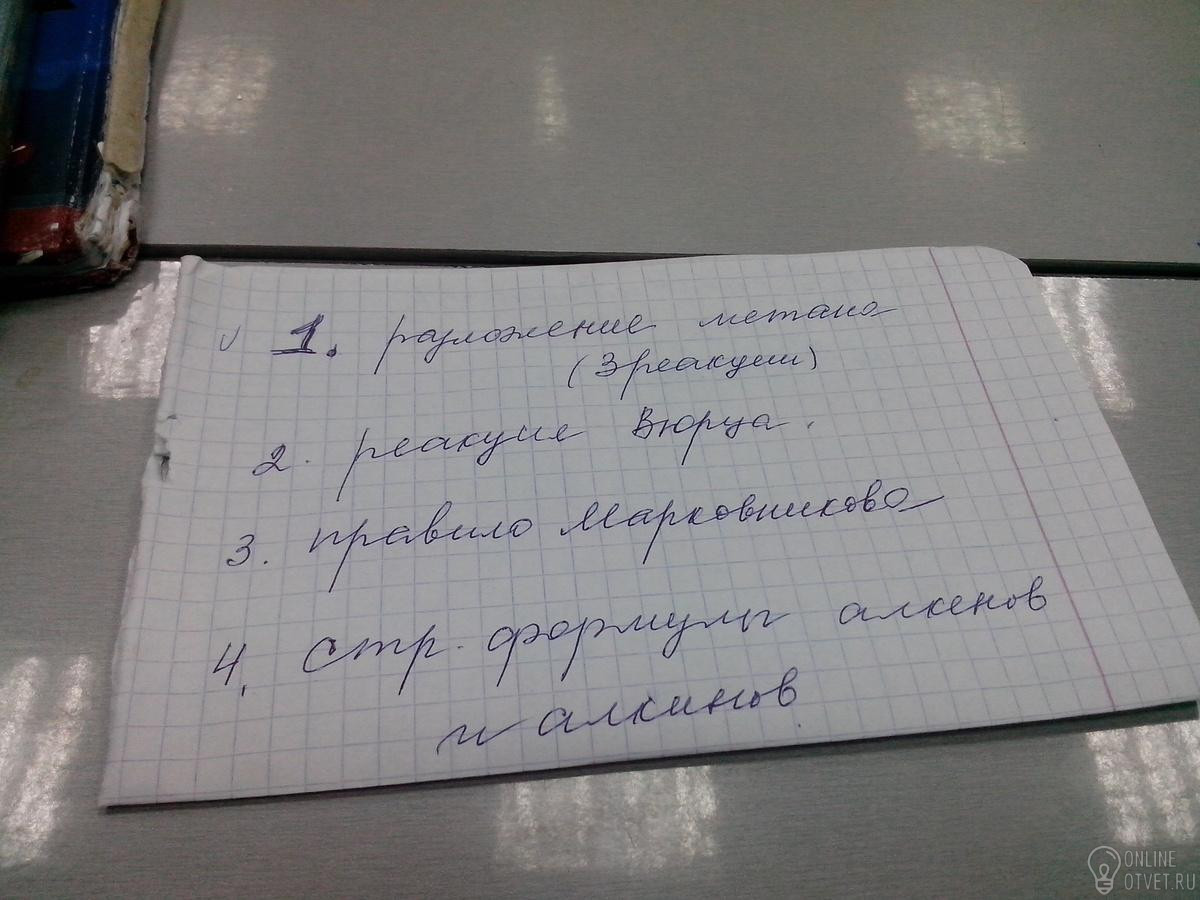 1. разложение метана
(3 реакции)
2. реакция Вюрца.
3. правило Марковникова
4. стр. формулы алкенов
и алкинов
ONLINE
OTVET.RU